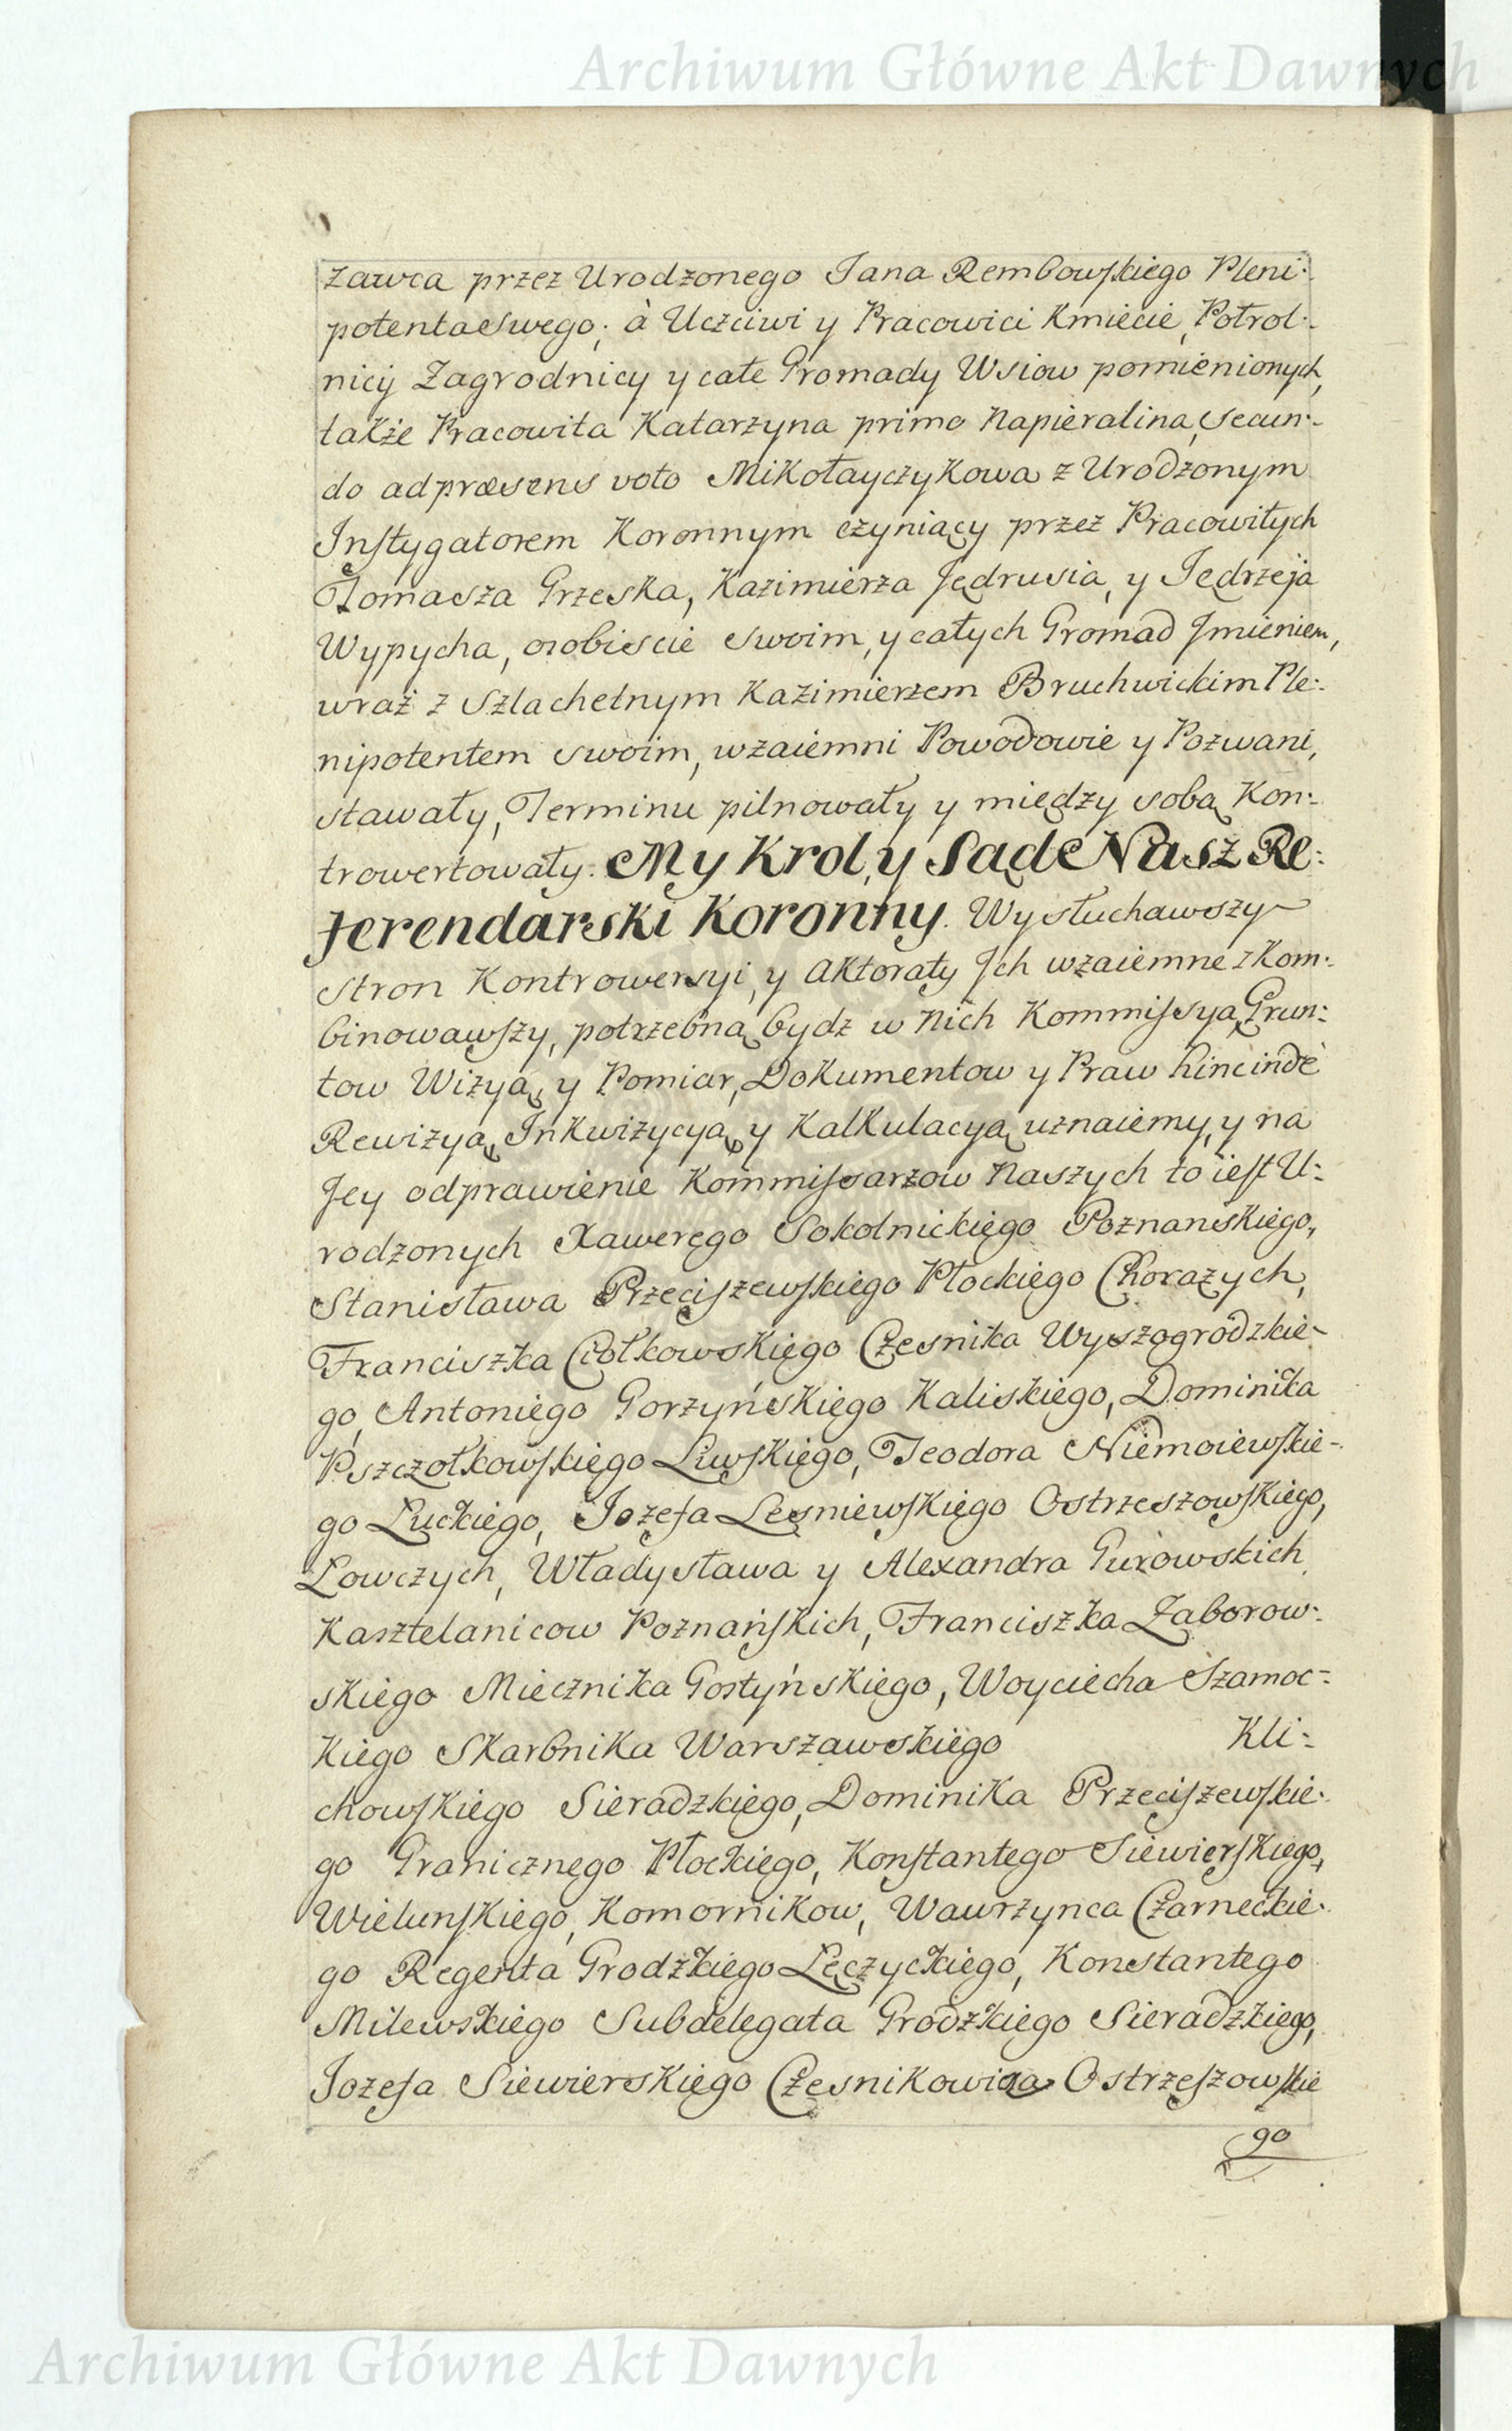 Archiwum Główne Akt Dawnych
zawca przez Urodzonego Jana Rembowskiego Pleni:
potenta swego; à Uczciwi y Pracowici Kmiecie, Potrol:
nicy Zagrodnicy y całe Gromady Wsiow pomienionych,
także Pracowita Katarzyna primo Napieralina, secun:
do ad præsens voto Mikołayczykowa z Urodzonym
Instygatorem Koronnym czyniący przez Pracowitych
Tomasza Grzeska, Kazimierza Jędrusia, y Jędrzeja
Wypycha, osobiscie swoim, y całych Gromad Jmieniem,
wraz z Szlachetnym Kazimierzem Bruchwickim Ple:
nipotentem swoim, wzaiemni Powodowie y Pozwani,
stawały, Terminu pilnowały y między sobą Kon:
trowertowały. My Krol, y Sąd Nasz Re:
ferendarski Koronny. Wysłuchawszy
stron Kontrowersyi, y Aktoraty Jch wzaiemne zkom:
binowawszy, potrzebną bydz w nich Kommissyą, Grun:
tow Wizyą, y Pomiar, Dokumentow y Praw hincinde
Rewizyą, Inkwizycyą, y Kalkulacyą uznaiemy, y na
Jey odprawienie Kommissarzow Naszych to iest U:
rodzonych Xawerego Sokolnickiego Poznanskiego,
Stanisława Przeciszewskiego Płockiego Chorązych,
Franciszka Ciołkowskiego Czesnika Wyszogrodzkie-
go, Antoniego Gorzyńskiego Kaliskiego, Dominika
Pszczołkowskiego Liwskiego, Teodora Niemoiewskie-
go Łuckiego, Jozefa Lesniewskiego Ostrzeszowskiego,
Łowczych, Władysława y Alexandra Gurowskich
Kasztelanicow Poznańskich, Franciszka Zaborow:
skiego Miecznika Gostyńskiego, Woyciecha Szamoc=
kiego Skarbnika Warszawskiego Kli:
chowskiego Sieradzkiego, Dominika Przeciszewskie:
go Granicznego Płockiego, Konstantego Siewierskiego,
Wielunskiego, Komornikow, Wawrzynca Czarneckie:
go Regenta Grodzkiego Łęczyckiego, Konstantego
Milewskiego Subdelegata Grodzkiego Sieradzkiego,
Jozefa Siewierskiego Czesnikowica Ostrzeszowskie
go
Archiwum Główne Akt Dawnych